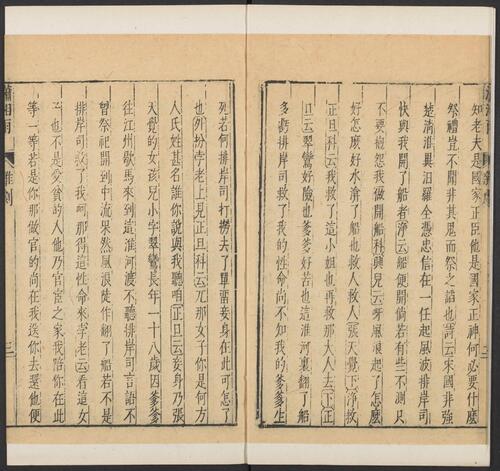 知老夫是國家正臣他是國家正神何必要什麽
祭禮豈不聞非其鬼而祭之諂也詩云宋國非強
楚清淮異汨羅全憑忠信在一任起風波排岸司
快與我開了船者淨云船便開倘若有些不測只
不要抱怨我做開船科興兒云呀風浪起了怎麽
好怎麽好水渰了船也救人救人張天覺下淨救
正旦科云我救了這小姐也再救那大人去下正
旦云翠鸞好險也爹爹好苦也這淮河裏翻了船
多虧排岸司救了我的性命尚不知我的爹爹生
死若何排岸司打撈去了單留妾身在此可怎了
也外扮孛老上見正旦科云兀那女子你是何方
人氏姓甚名誰你說與我聽咱正旦云妾身乃張
天覺的女孩兒小字翠鸞長年一十八歲因爹爹
往江州歇馬來到這淮河渡不聽排岸司言語不
曾祭祀開到中流果然風浪陡作翻了船若不是
排岸司救了我呵那得這性命來孛老云看這女
子也不是受貧的人他乃官宦之家我陪你在此
等一等若是你那做官的尚在我送你去還他便
瀟湘雨
雜劇
三